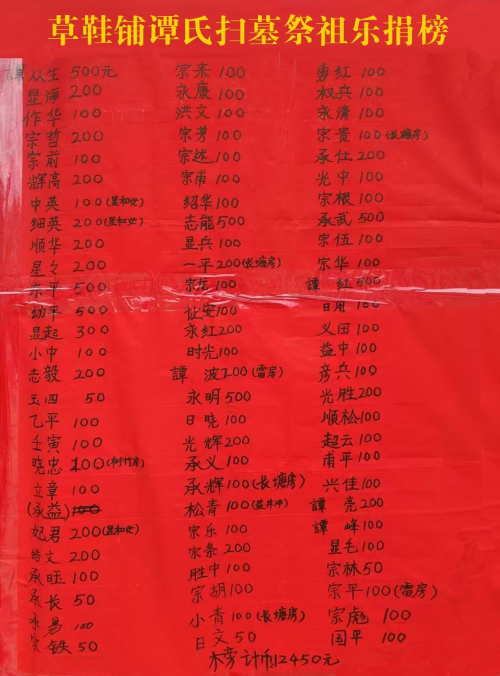 草鞋铺谭氏扫墓祭祖乐捐榜
譚 从生 500元
显海 200
作华 100
宗哲 200
宗前 100
辉高 200
中英 100(星和女)
细英 200(星和女)
顺华 200
星 200
京平 500
幼平 500
显起 300
小中 100
志毅 200
玉四 50
乙平 100
壬寅 100
晓忠 100
立章 100
(承益) 100
妃君 200(星和女)
文 200
承旺 100
承长 50
承易 100
宗铁 50
宗来 100
永康 100
洪文 100
宗芳 100
宗述 100
宗甫 100
绍华 100
志能 500
显兵 100
一平 200(长塘房)
宗 100
证安 100
永红 200
时光 100
譚 波 200(雷房)
永明 500
日晓 100
光辉 200
承义 100
承辉 100(长塘房)
松青 100(益井冲)
宗乐 100
宗条 200
胜中 100
宗胡 100
小青 100(长塘房)
日文 50
勇红 100
权兵 100
永清 100
宗贵 100(长塘房)
承仕 200
光中 100
宗根 100
承武 500
宗伍 100
宗华 100
譚 红 500
日用 100
义田 100
益中 100
彦兵 100
光胜 200
顺松 100
超云 100
甫平 100
兴佳 100
譚 亮 200
譚 峰 100
显毛 100
宗林 50
宗平 100(雷房)
宗彪 100
国平 100
本榜计币12450元